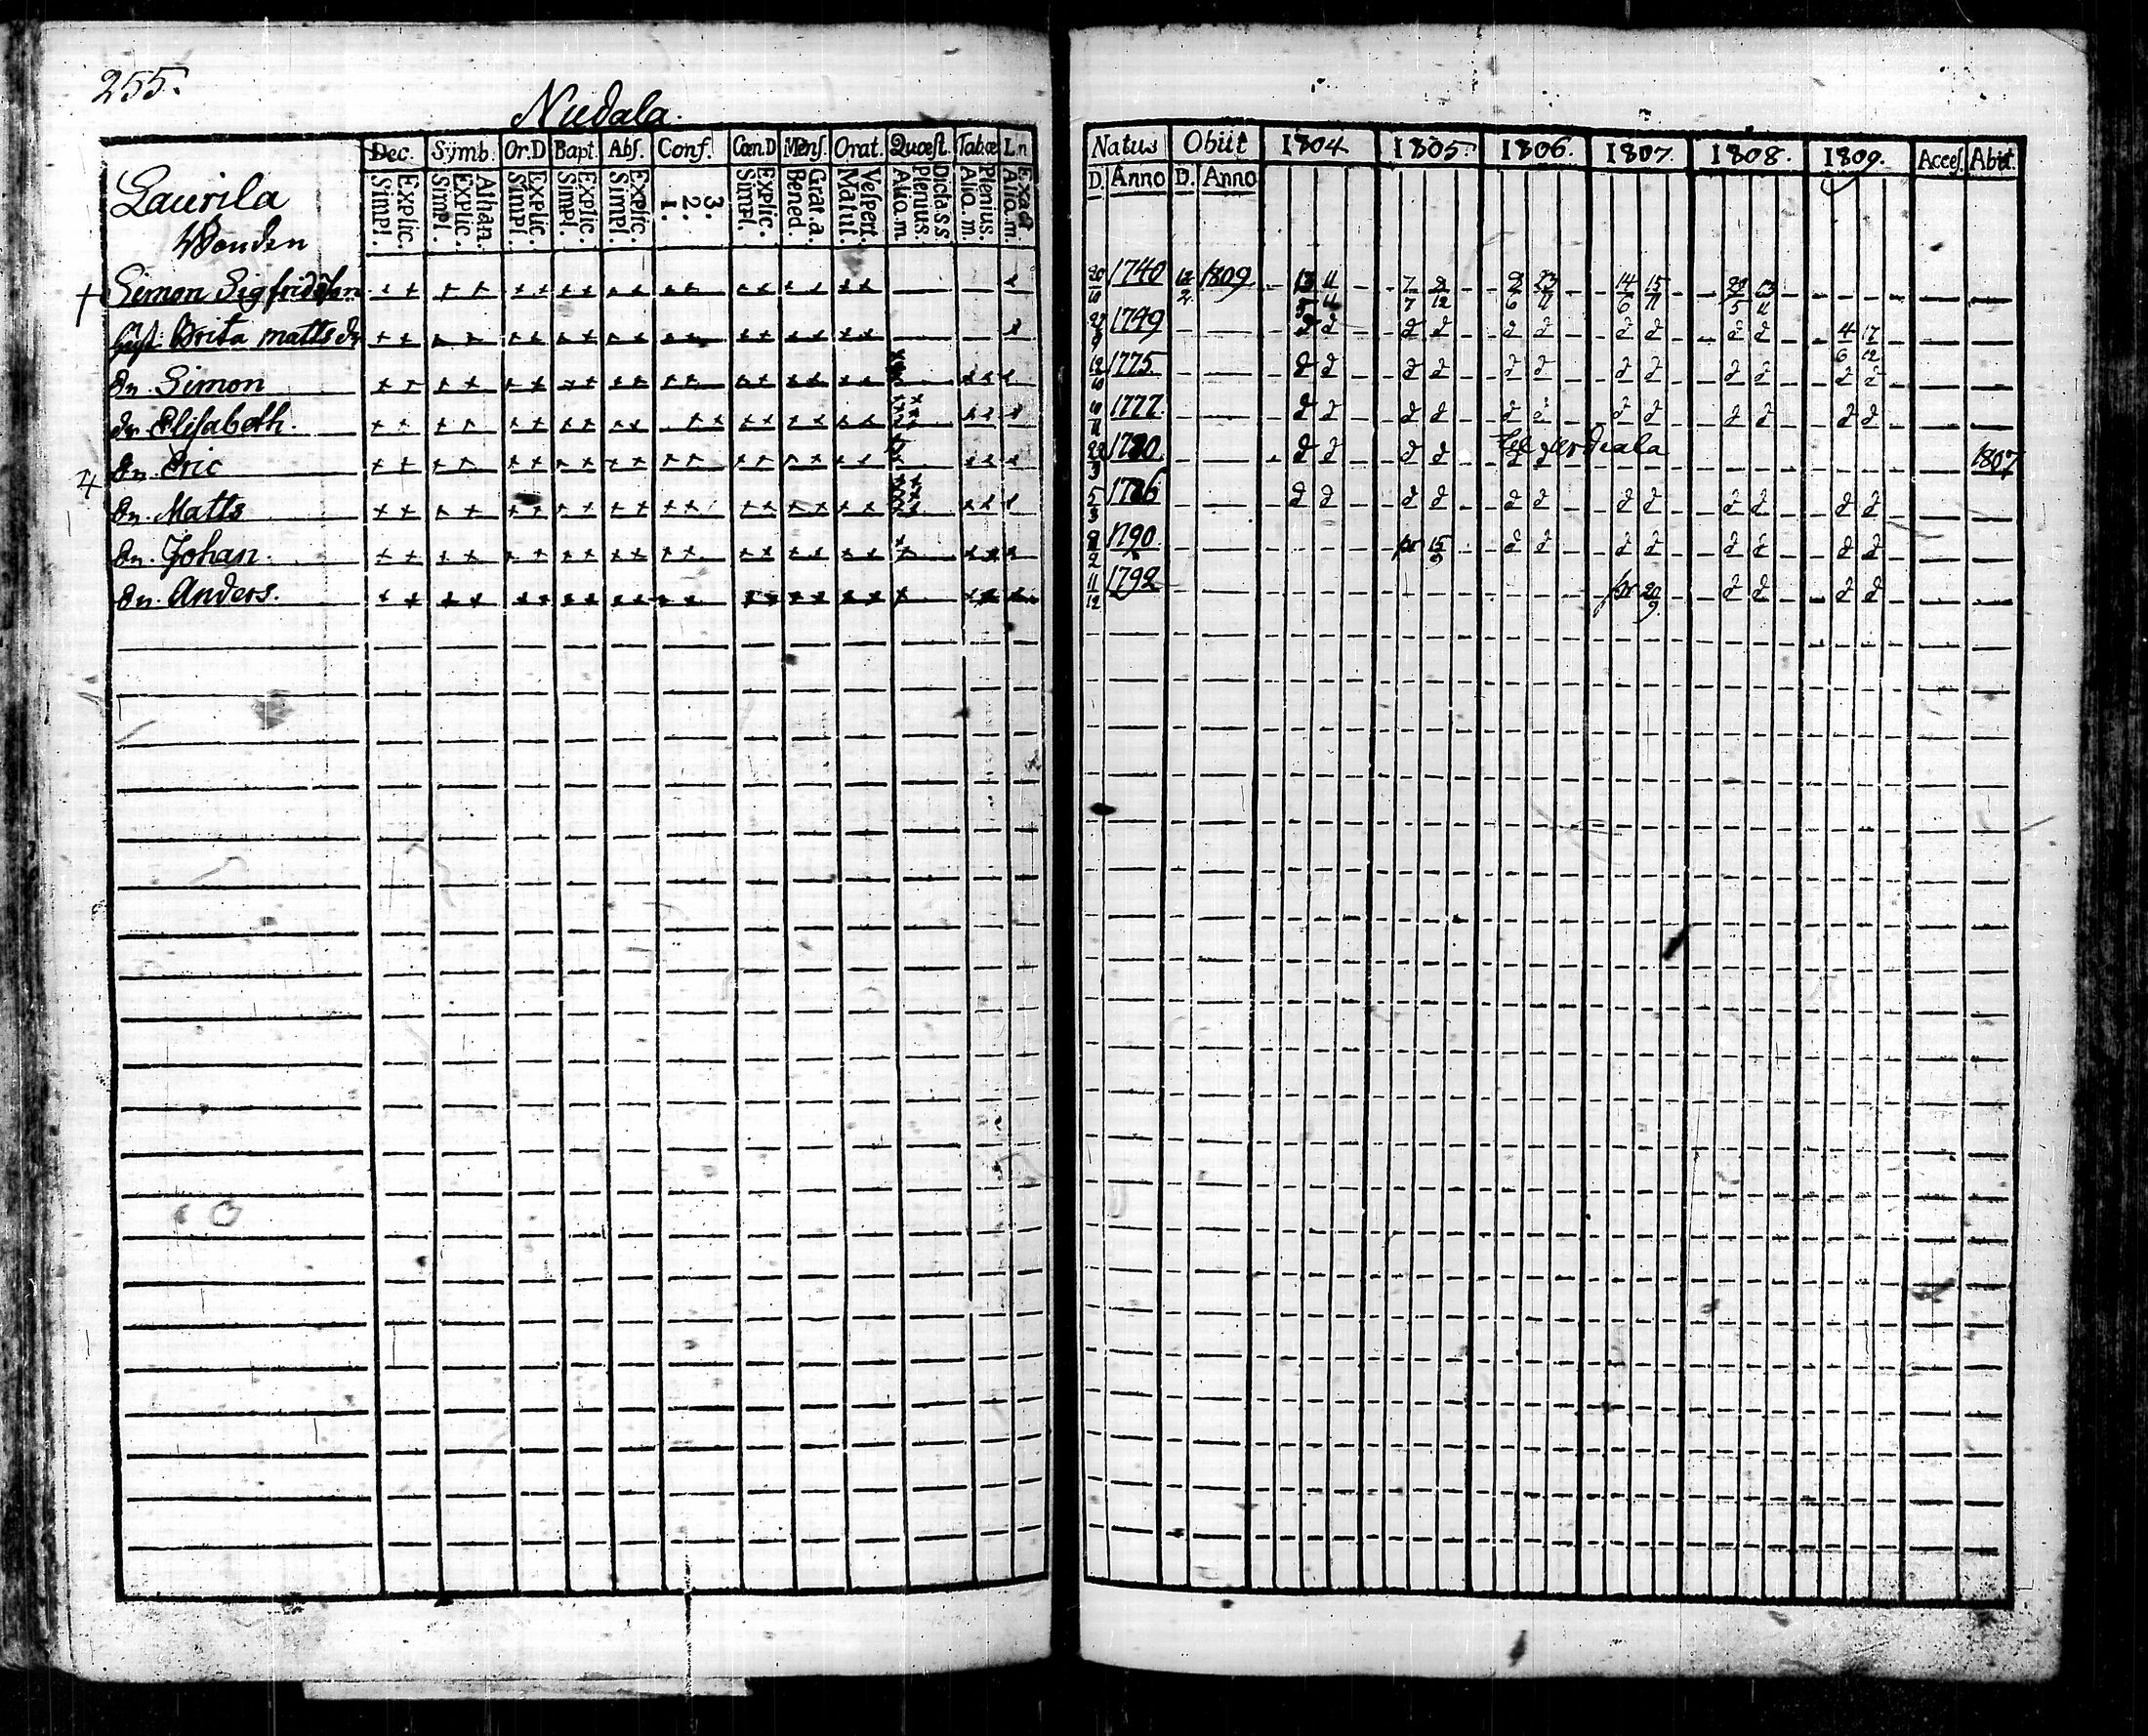 255.
Nudala.
Dec. Symb. Or.D Bapt. Abs. Conf. Cœn.D Mens. Orat. Quæst. Tabæ L.n
Simpl. Explic. Simpl. Explic. Athan. Simpl. Explic. Simpl. Explic. Simpl. Explic. 1. 2. 3. Simpl. Explic. Bened. Grat. a. Matut. Vespert. Alio. m Plenius. Dicta. s. s Alio. m. Plenius. Alia. m. Exact
Natus Obiit 1804 1805. 1806. 1807. 1808. 1809. Acces. Abiit
D. Anno D. Anno
Laurila
Bonden
† Simon Sigfridsson 20/10 1740 12/2 1809 13/5 11/11 7/7 2/12 2/6 23/11 14/6 15/11 29/5 13/11
hust: Brita matts dr 1749 d d d d d d d d d d 4/6 17/12
Sn. Simon 12/10 1775. d d d d d d d d d d d d
dr Elisabeth. 10/11 1777. d d d d d d d d d d d d
Sn. Eric 1780 d d d d d d 1807
Sn. Matts 5/3 1786 d d d d d d d d d d d d
Sn. Johan. 1790. pr 15/9 d d d d d d d d
Sn. Anders. 11/12 1792 pr 20/9 d d d d